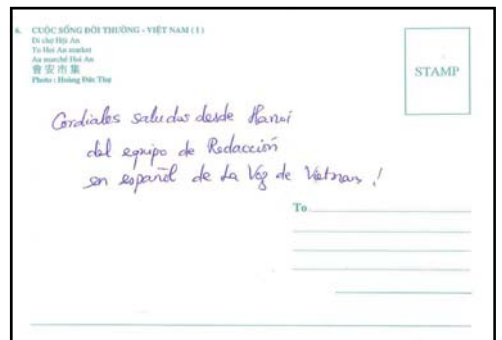 6. CUỘC SỐNG ĐỜI THƯỜNG - VIỆT NAM ( 1 )
Đi chợ Hội An
To Hoi An market
Au marché Hoi An
會安市集
Photo : Hoàng Đức Thọ
STAMP
Cordiales saludos desde Hanoi
del equipo de Redacción
en español de La Voz de Vietnam !
To